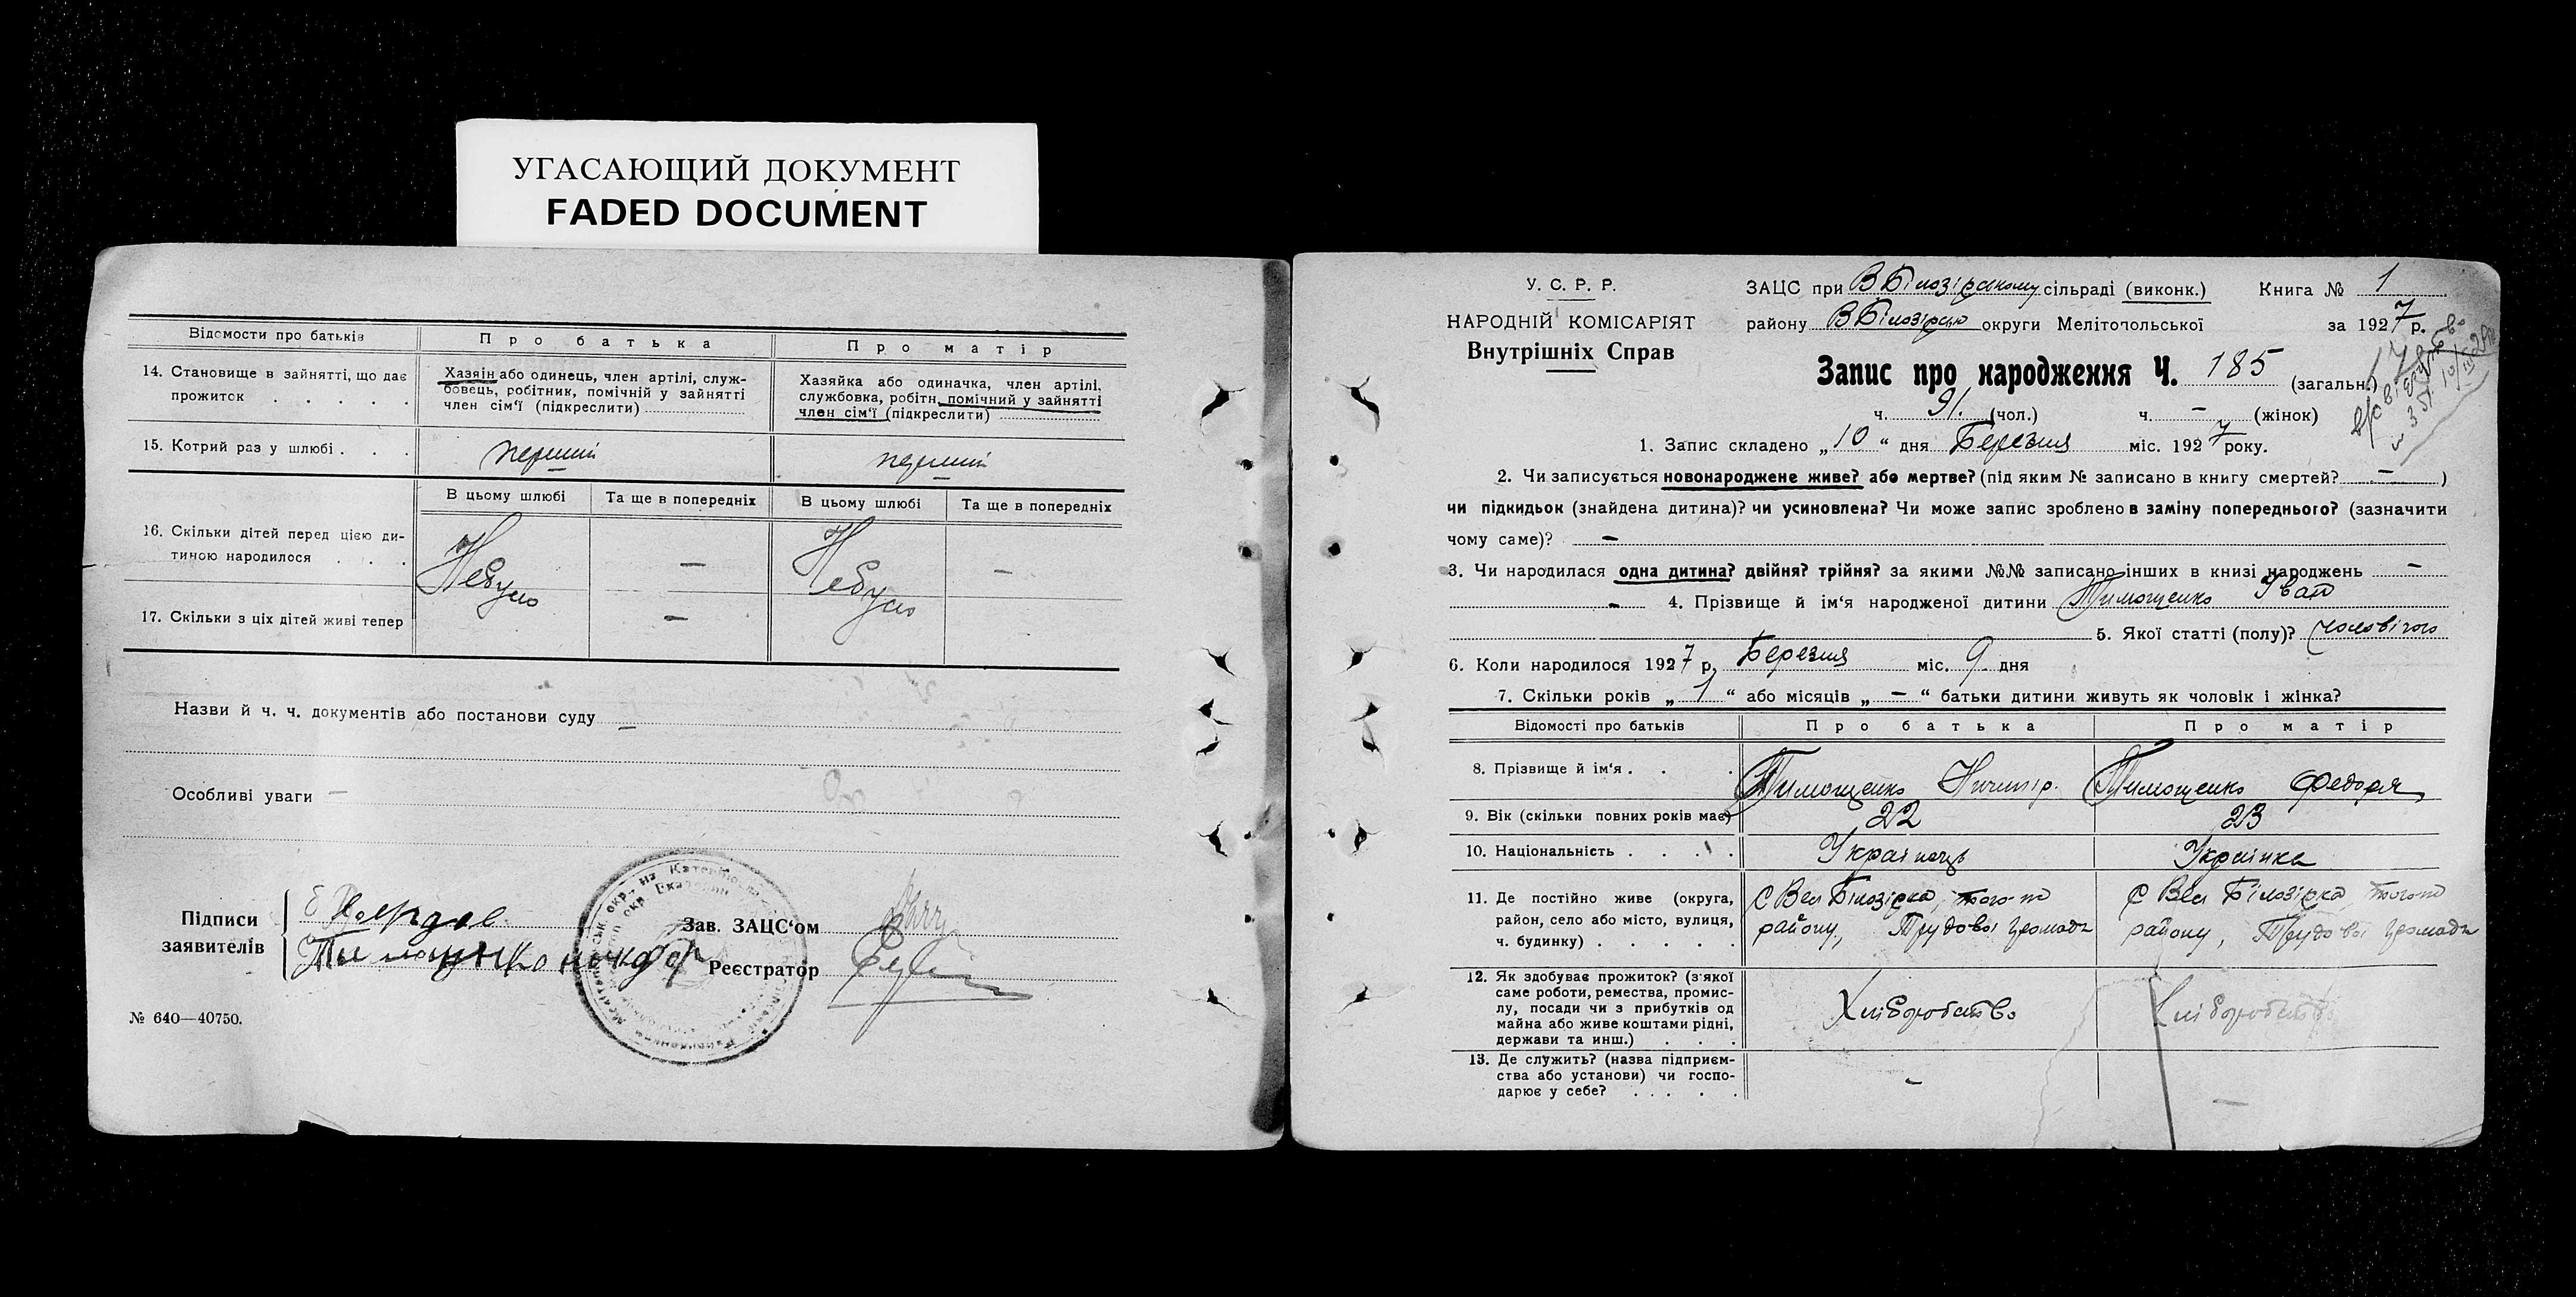 УГАСАЮЩИЙ ДОКУМЕНТ
FADED DOCUMENT
Відомости про батьків
Про батька
Про матір
14. Становище в зайнятті, що дає прожиток . . . . .
Хазяїн або одинець, член артілі, служ-
бовець, робітник, помічній у зайнятті
член сім'ї (підкреслити)
Хазяйка або одиначка, член артілі,
службовка, робітн. помічний у зайнятті
член сім'ї (підкреслити)
15. Котрий раз у шлюбі . . .
перший
перший
В цьому шлюбі
Та ще в попередніх
В цьому шлюбі
Та ще в попередніх
16. Скільки дітей перед цією ди-
тиною народилося . . .
Небуло
—
Небуло
—
17. Скільки з ціх дітей живі тепер
—
Назви й ч. ч. документів або постанови суду —
Особливі уваги —
Підписи
заявителів
Зав. ЗАЦС'ом
Реєстратор
№ 640—40750.
У. С. Р. Р.
НАРОДНІЙ КОМІСАРІЯТ
Внутрішніх Справ
ЗАЦС при В Білозірському сільраді (виконк.)
Книга № 1
району В Білозірсько округи Мелітопольської
за 1927 р.
Запис про народження Ч. 185 (загальн.)
ч. 91. (чол.) ч. — (жінок)
1. Запис складено „10“ дня Березня міс. 1927 року.
2. Чи записується новонароджене живе? або мертве? (під яким № записано в книгу смертей? — )
чи підкидьок (знайдена дитина)? чи усиновлена? Чи може запис зроблено в заміну попереднього? (зазначити
чому саме)? —
3. Чи народилася одна дитина? двійня? трійня? за якими №№ записано інших в книзі народжень —
— 4. Прізвище й ім'я народженої дитини Тимощенко Іван
5. Якої статті (полу)? чоловічого
6. Коли народилося 1927 р. Березня міс. 9 дня
7. Скільки років „1“ або місяців „—“ батьки дитини живуть як чоловік і жінка?
Відомості про батьків
Про батька
Про матір
8. Прізвище й ім'я . . .
Тимощенко Ничипір.
Тимощенко Федора
9. Вік (скільки повних років має)
22
23
10. Національність . . . .
Українець
Українка
11. Де постійно живе (округа,
район, село або місто, вулиця,
ч. будинку) . . . . .
С Вел Білозірка, того-ж
району, Трудової громади
С Вел Білозірка, того-ж
району, Трудової громади
12. Як здобуває прожиток? (з якої
саме роботи, ремества, промис-
лу, посади чи з прибутків од
майна або живе коштами рідні,
держави та инш.) . . .
Хліборобство
Хліборобство
13. Де служить? (назва підприєм-
ства або установи) чи госпо-
дарює у себе? . . . . .
—
—